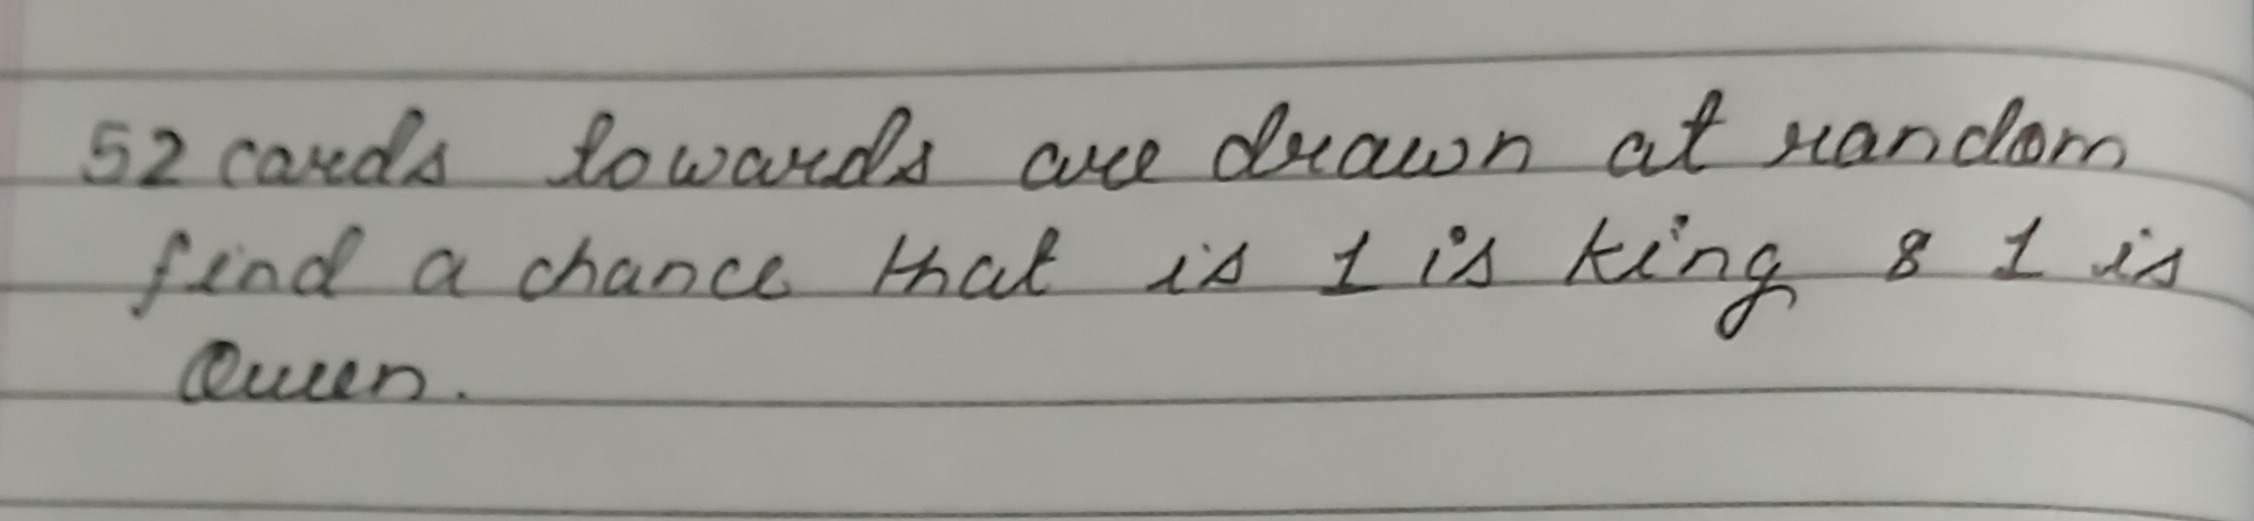 52 cards towards are drawn at random
find a chance that is 1 is king & 1 is
Queen.